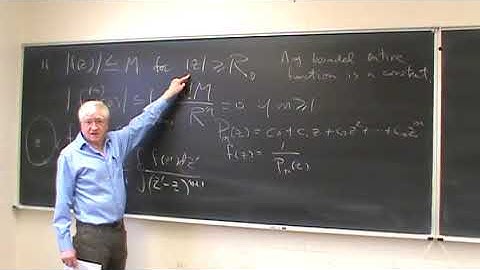 If |f(z)| ≤ M for |z| ≥ R₀
Any bounded entire
function is a constant.
M
Rⁿ = 0 ∀ n ≥ 1
Pₘ(z) = c₀ + c₁z + c₂z² + ··· + cₘzᵐ
f(z) = 1 / Pₘ(z)
∫ f(z') dz' / (z' - z)ⁿ⁺¹